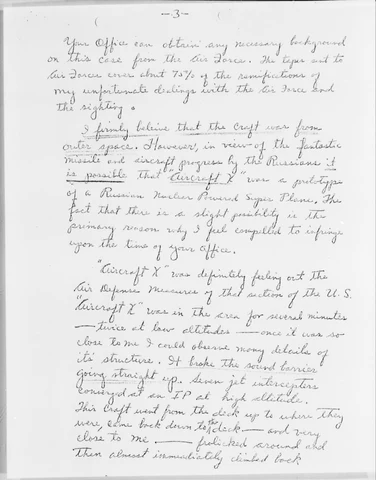 -3-
Your Office can obtain any necessary background
on this case from the Air Force. The tapes sent to
Air Force cover about 75% of the ramifications of
my unfortunate dealings with the Air Force and
the sighting.
I firmly believe that the craft was from
outer space. However, in view of the fantastic
missile and aircraft progress by the Russians it
is possible that "Aircraft X" was a prototype
of a Russian Nuclear Powered Super Plane. The
fact that there is a slight posibility is the
primary reason why I feel compelled to infringe
upon the time of your office.
"Aircraft X" was definitely feeling out the
Air Defense measures of that section of the U.S.
"Aircraft X" was in the area for several minutes
— twice at low altitudes — once it was so
close to me I could observe many details of
its structure. It broke the sound barrier
going straight up. Seven jet interceptors
converged at an IP at high altitude.
This craft went from the deck up to where they
were, came back down to the deck — and very
close to me — frolicked around and
then almost immediately climbed back